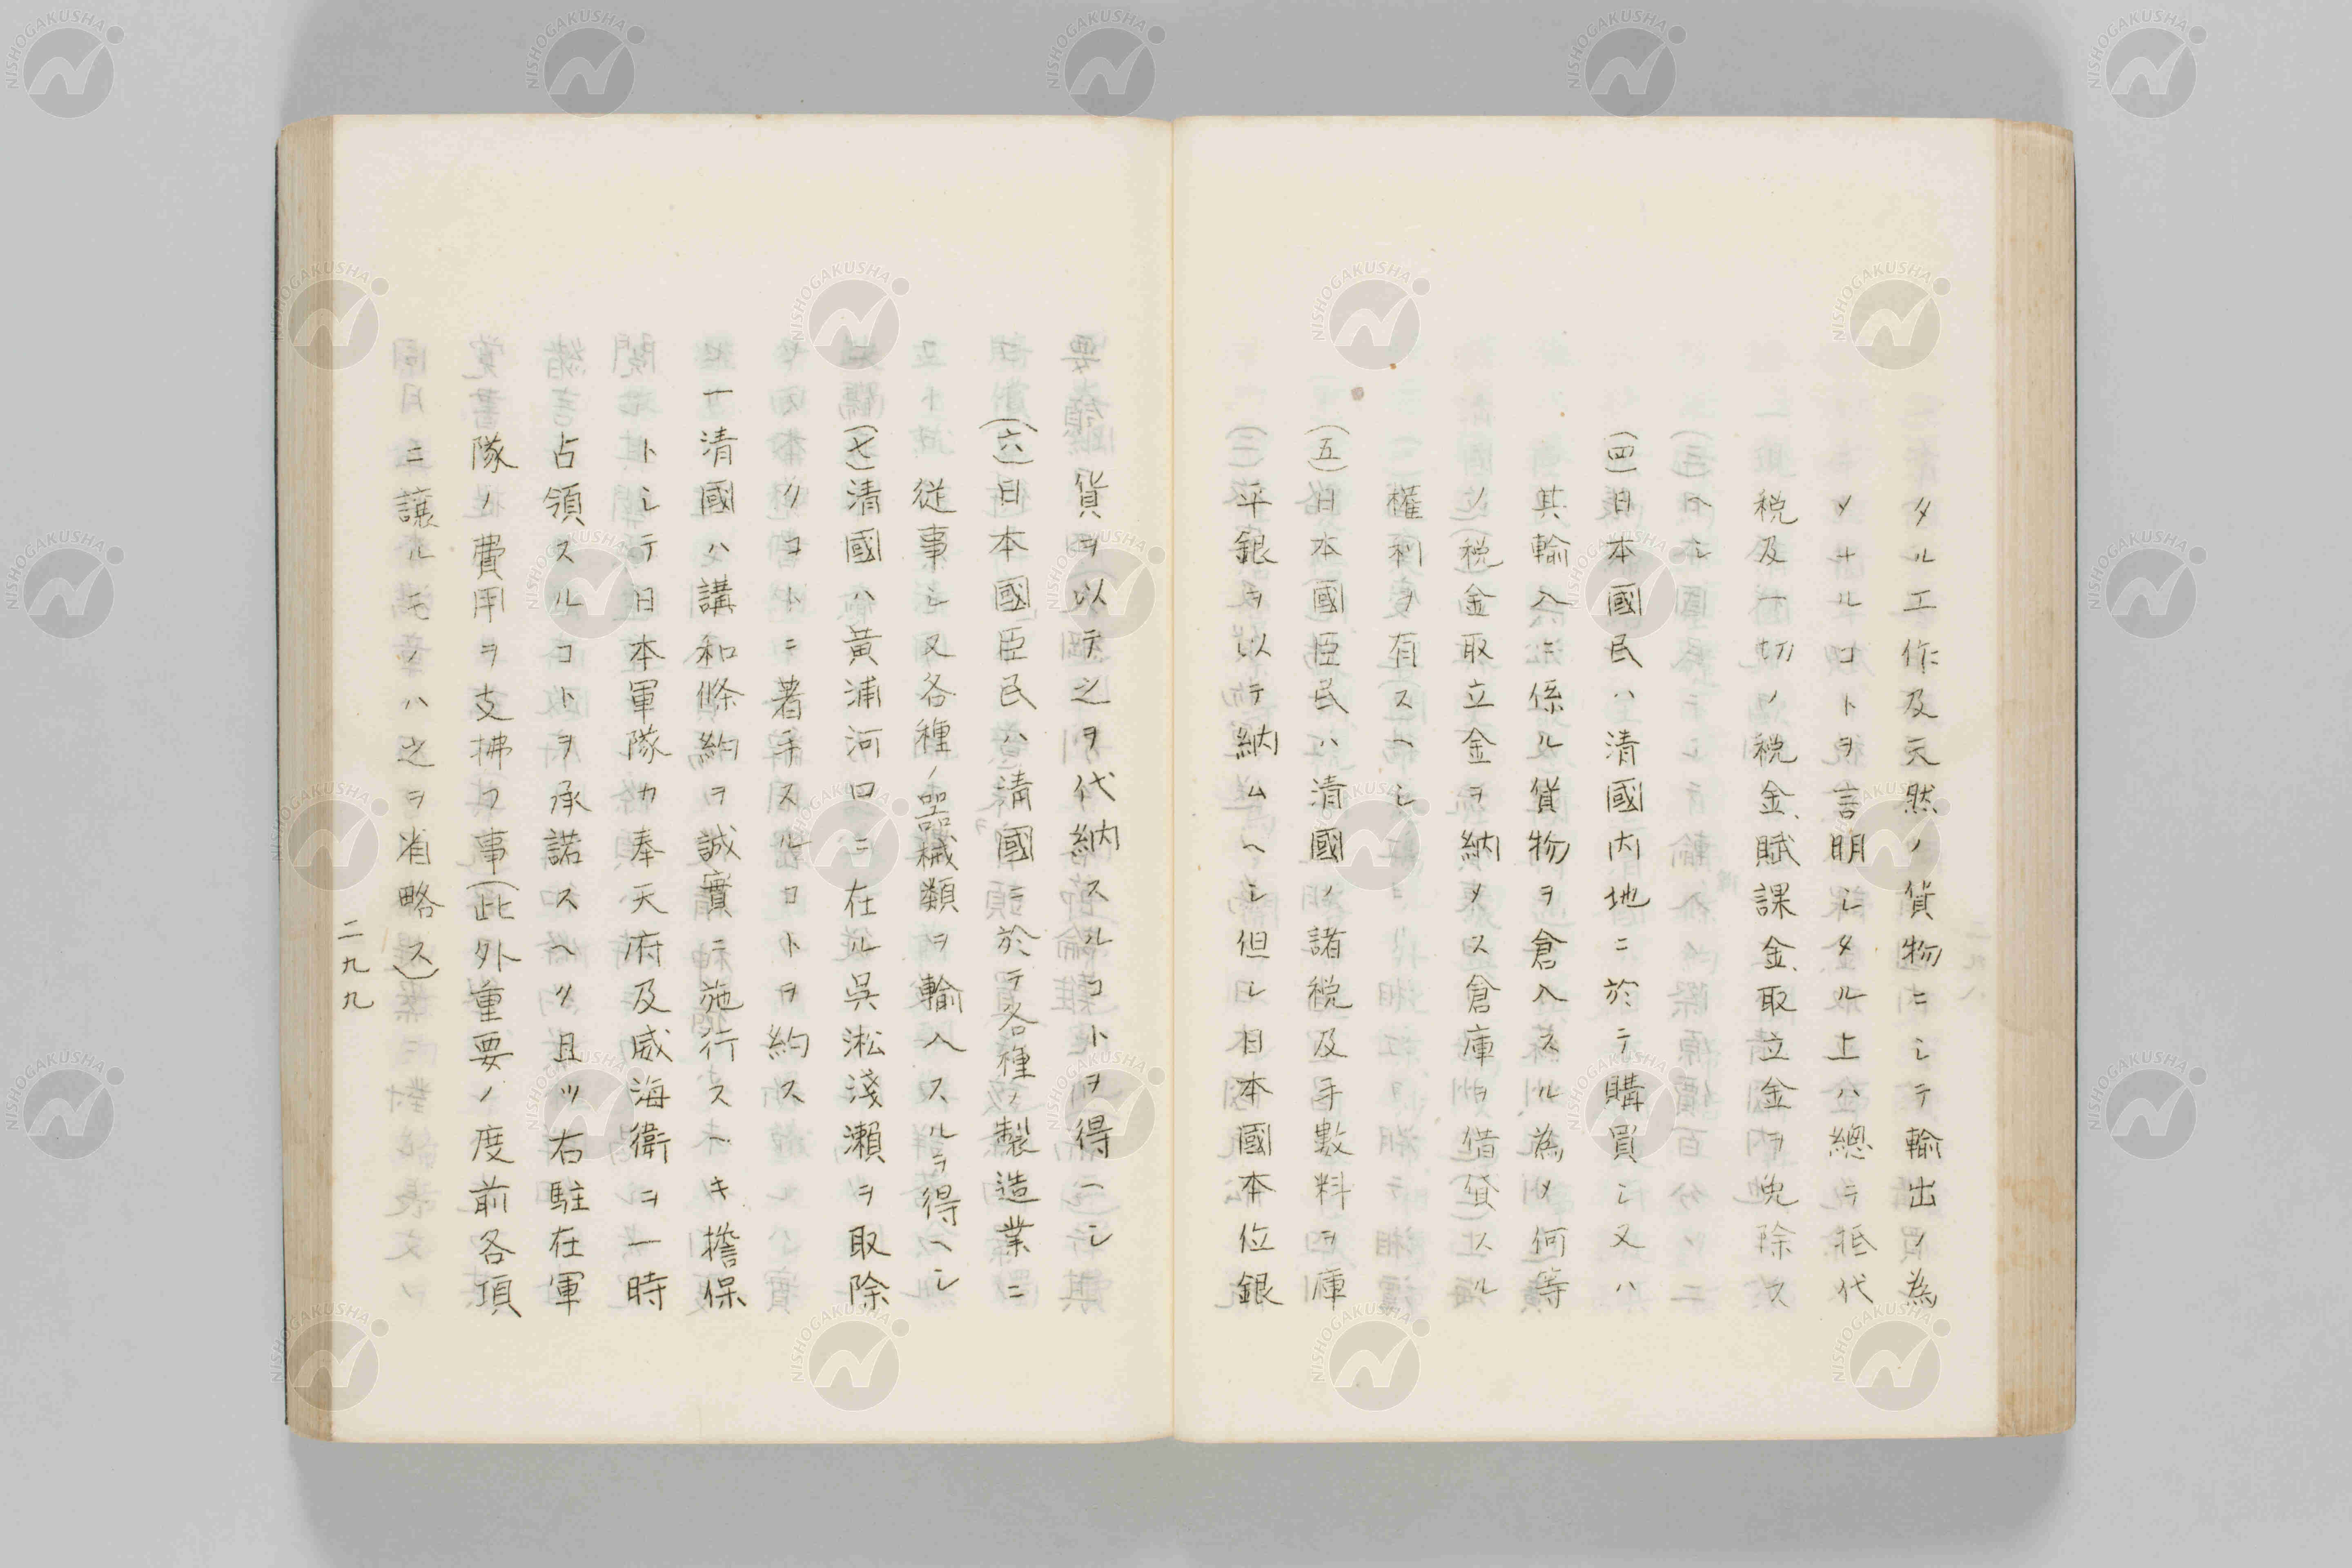 タル工作及天然ノ貨物ニシテ輸出ノ為
メナルコトヲ言明シタル上ハ總テ抵代
税及一切ノ税金、賦課金、取立金ヲ免除ス
ヘシ
(四)日本國民ハ清國内地ニ於テ購買シ又ハ
其輸入ニ係ル貨物ヲ倉入スル為メ何等
ノ税金取立金ヲ納メス倉庫ヲ借貸スル
權利ヲ有スヘシ
(五)日本國臣民ハ清國ノ諸税及手數料ヲ庫
平銀ヲ以テ納ムヘシ但シ日本國本位銀
貨ヲ以テ之ヲ代納スルコトヲ得ヘシ
(六)日本國臣民ハ清國ニ於テ各種ノ製造業ニ
從事シ又各種ノ器械類ヲ輸入スルヲ得ヘシ
(七)清國ハ黄浦河口ニ在ル呉淞淺瀬ヲ取除
クコトニ著手スルコトヲ約ス
一清國ハ講和條約ヲ誠實ニ施行スヘキ擔保
トシテ日本軍隊カ奉天府及威海衛ヲ一時
占領スルコトヲ承諾スヘク且ツ右駐在軍
隊ノ費用ヲ支拂フ事(此外重要ノ度前各項
ニ讓ルモノハ之ヲ省略ス)
二九九
NISHOGAKUSHA